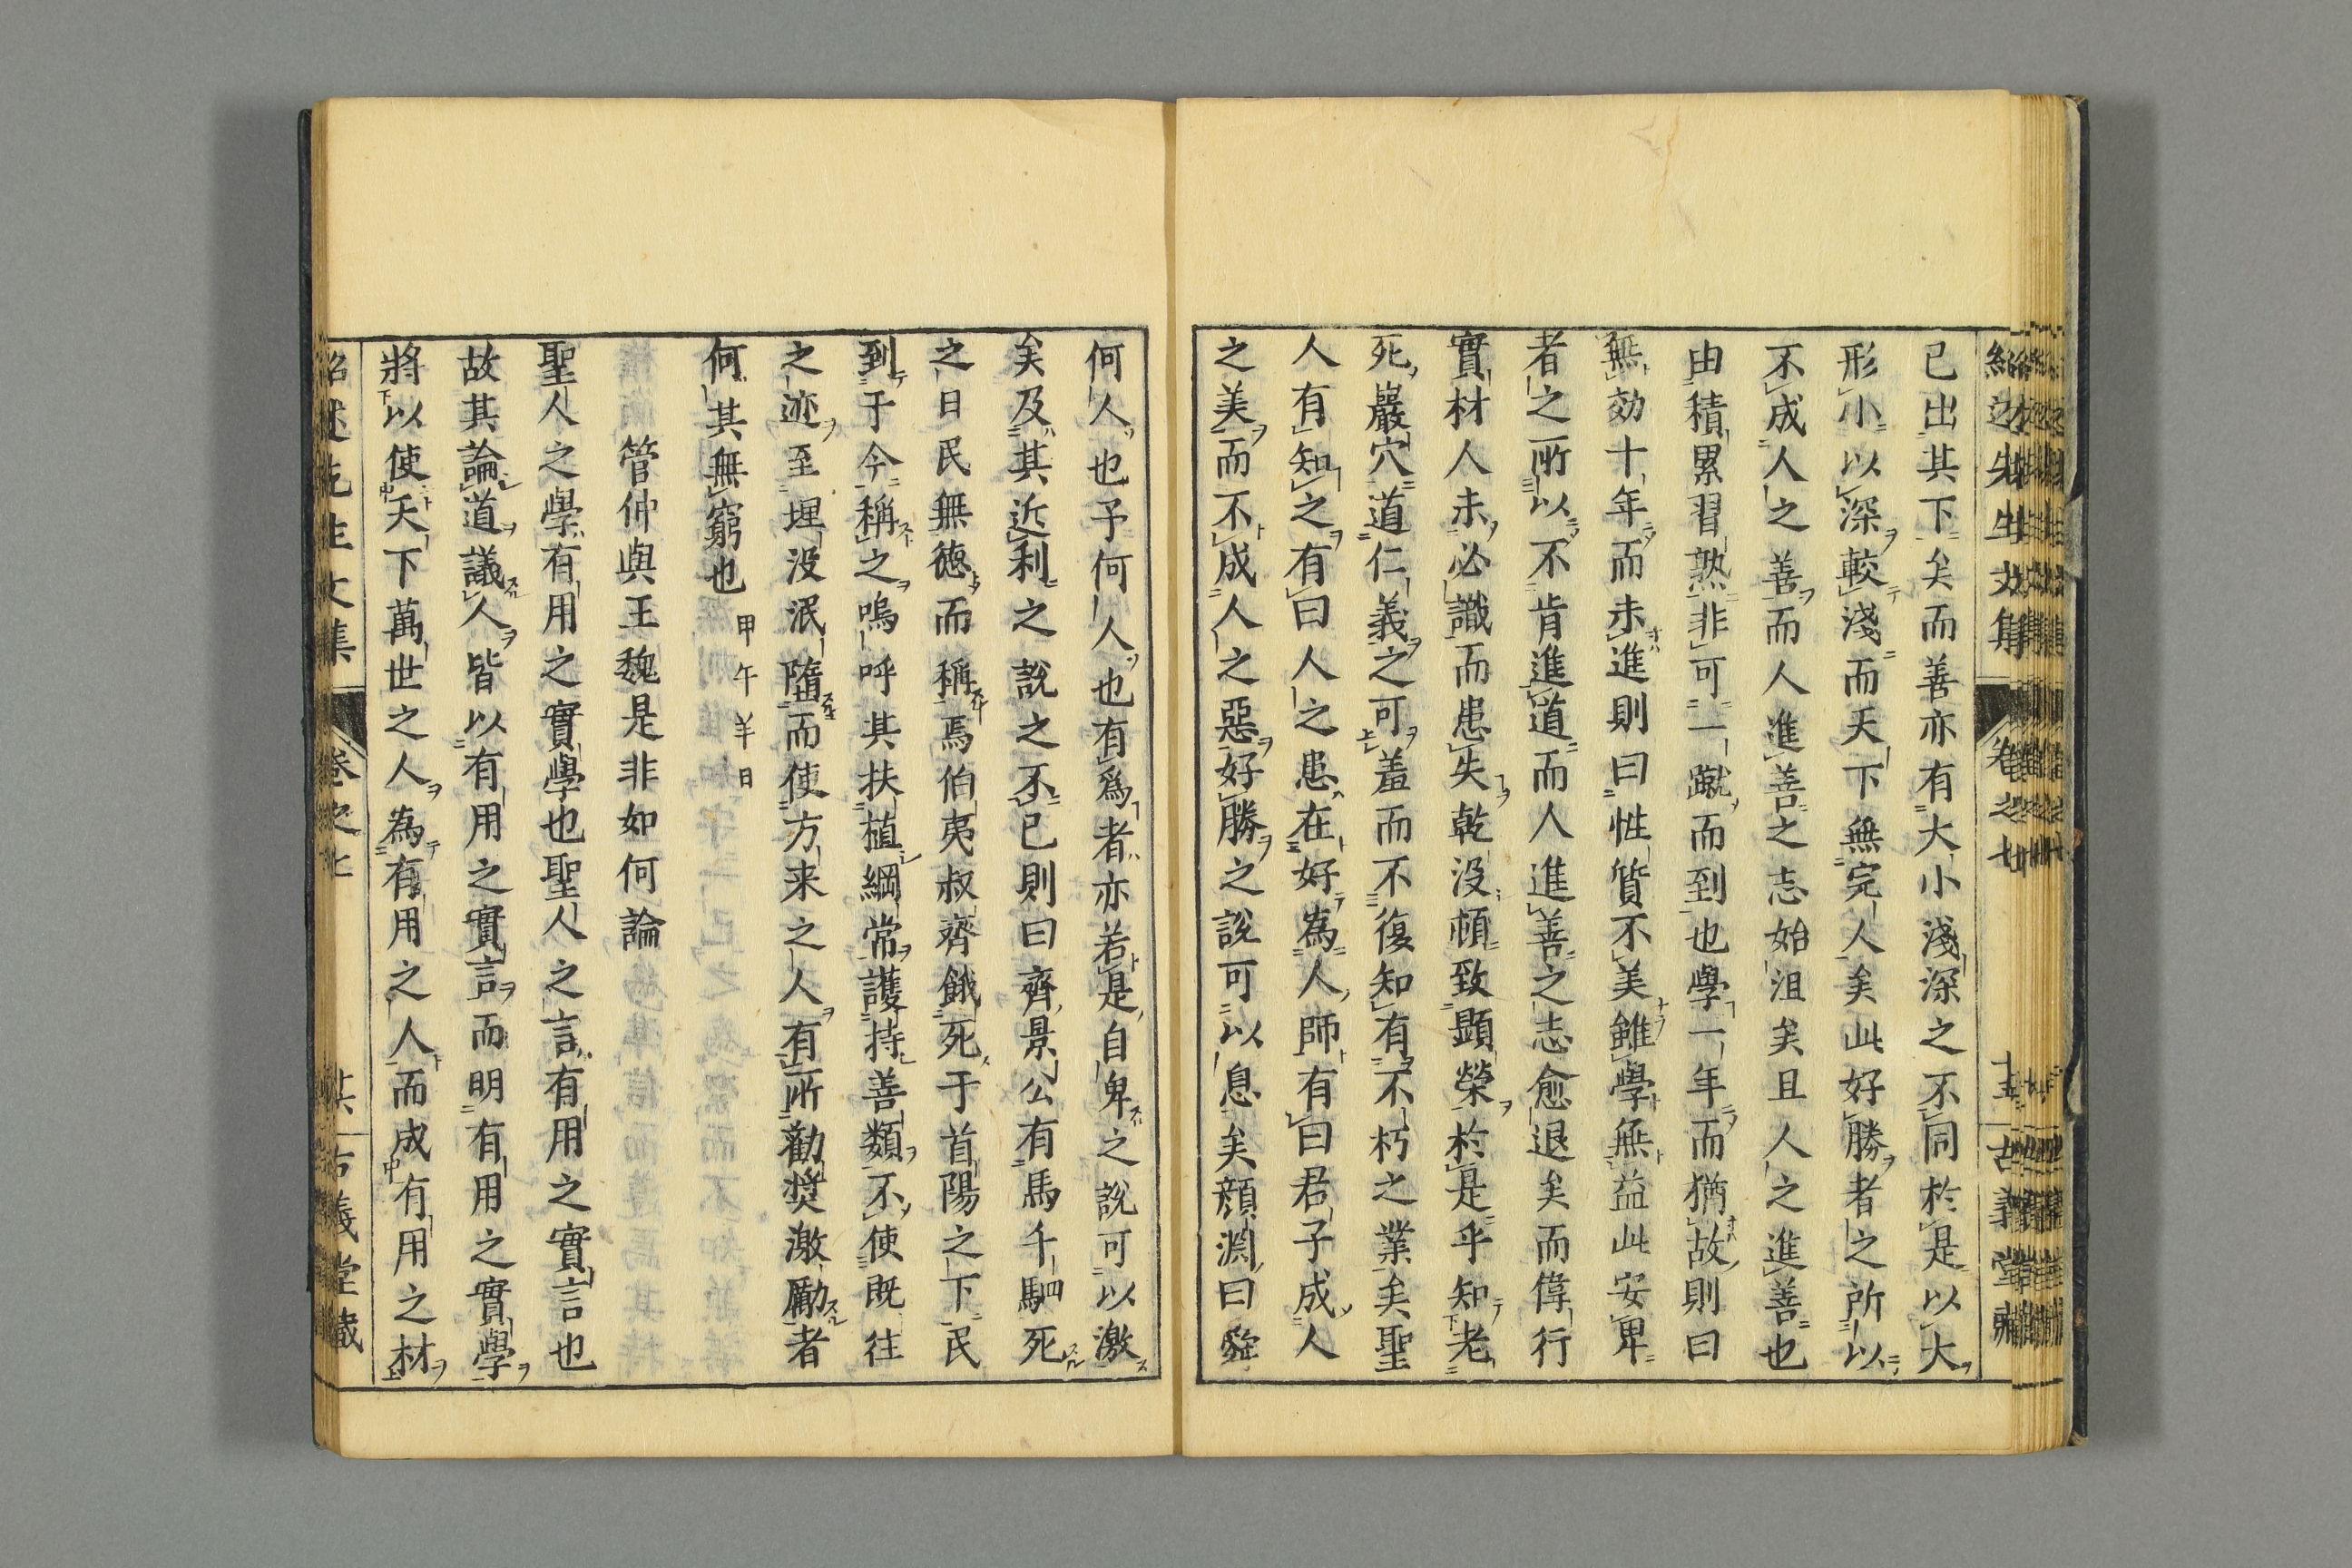 紹述先生文集 卷之七 十五 古義堂藏
已出其下矣而善亦有大小淺深之不同於是以大
形小以深較淺而天下無完人矣此好勝者之所以
不成人之善而人進善之志始沮矣且人之進善也
由積累習熟非可一蹴而到也學一年而猶故則曰
無効十年而未進則曰性質不美雖學無益此安卑
者之所以不肯進道而人進善之志愈退矣而偉行
實材人未必識而患失乾没頓致顕榮於是乎知老
死巖穴道仁義之可羞而不復知有不朽之業矣聖
人有知之有曰人之患在好為人師有曰君子成人
之美而不成人之惡好勝之說可以息矣顔淵曰舜
何人也予何人也有爲者亦若是自卑之說可以激
矣及其近利之說之不已則曰齊景公有馬千駟死
之日民無德而稱焉伯夷叔齊餓死于首陽之下民
到于今稱之嗚呼其扶植綱常護持善類不使既往
之迹至埋没泯墮而使方来之人有所勸奬激勵者
何其無窮也 甲午羊日
管仲與王魏是非如何論
聖人之學有用之實學也聖人之言有用之實言也
故其論道議人皆以有用之實言而明有用之實學
將以使天下萬世之人為有用之人而成有用之材
紹述先生文集 卷之七 古義堂藏